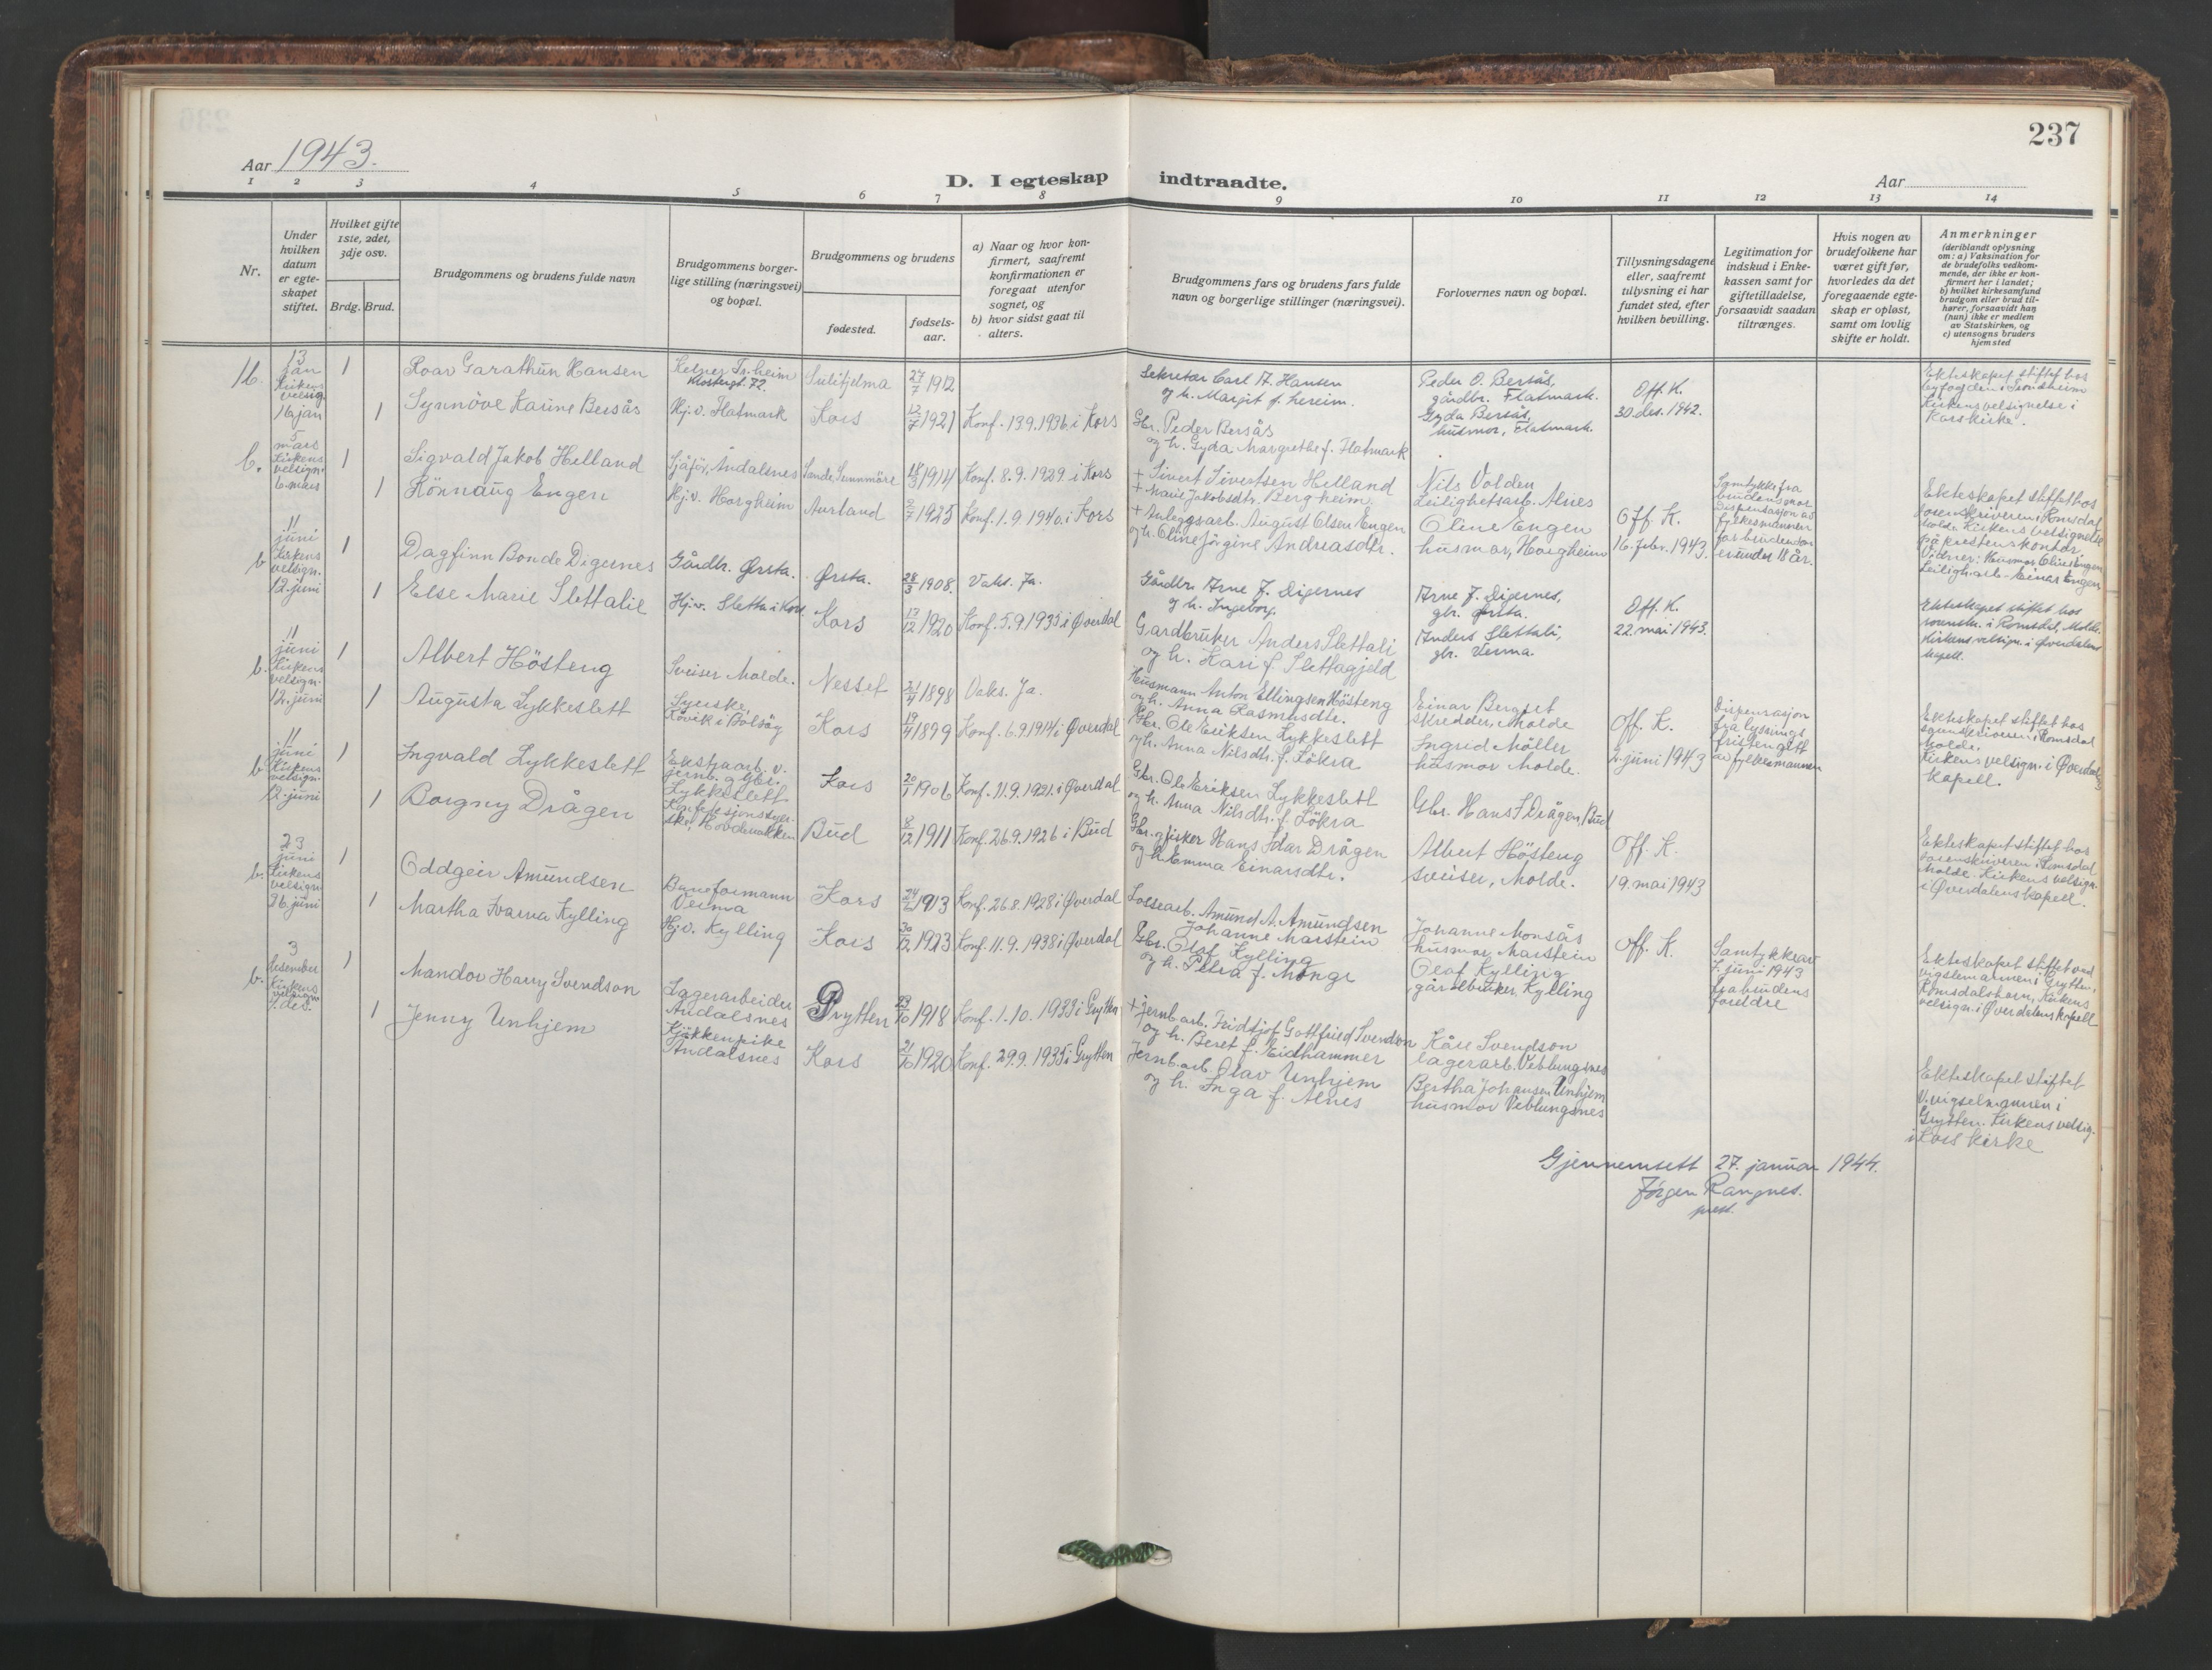 237
Aar 1943.
D. I egteskap indtraadte.
Aar
1 2 3 4 5 6 7 8 9 10 11 12 13 14
Nr.
Under hvilken datum er egteskapet stiftet.
Hvilket gifte 1ste, 2det, 3dje osv.
Brdg. Brud.
Brudgommens og brudens fulde navn
Brudgommens borgerlige stilling (næringsvei) og bopæl.
Brudgommens og brudens
fødested.
fødselsaar.
a) Naar og hvor konfirmert, saafremt konfirmationen er foregaat utenfor sognet, og
b) hvor sidst gaat til alters.
Brudgommens fars og brudens fars fulde navn og borgerlige stillinger (næringsvei).
Forlovernes navn og bopæl.
Tillysningsdagene eller, saafremt tillysning ei har fundet sted, efter hvilken bevilling.
Legitimation for indskud i Enkekassen samt for giftetilladelse, forsaavidt saadan tiltrænges.
Hvis nogen av brudefolkene har været gift før, hvorledes da det foregaaende egteskap er opløst, samt om lovlig skifte er holdt.
Anmerkninger
(deriblandt oplysning om: a) Vaksination for de brudefolks vedkommende, der ikke er konfirmert her i landet; b) hvilket kirkesamfund brudgom eller brud tilhører, forsaavidt han (hun) ikke er medlem av Statskirken, og c) utensogns bruders hjemsted
1b. 13 jan Kirkens velsign. 16 jan
1 Roar Garathun Hansen
Kelner Tr.heim Klostergt. 72. Sulitjelma 27/7 1912
Sekretær Carl A. Hansen
og h. Margit f. Hereim.
Peder O. Bersås,
gårdbr. Flatmark.
Off. K.
30 des. 1942.
Ekteskapet stiftet hos
byfogden i Trondheim
Kirkens velsignelse i
Kors kirke.
1 Synnöve Karine Bersås
Hj.v. Flatmark Kors 1921 Konf. 13.9.1936 i Kors
Gbr. Peder Bersås
og h. Gyda Margrethe f. Flatmark
Gyda Bersås,
husmor, Flatmark.
b. 5 mars Kirkens velsign. 6. mars
1 Sigvald Jakob Helland
Sjåför, Åndalsnes Sande Sunnmöre 1914 Konf. 8.9.1929. i Kors
+ Sivert Sivertsen Helland
+ Marie Jakobsdtr. Bergheim.
Nils Volden
Leilighetsarb. Alnes
Off. K.
16. febr. 1943.
Samtykke fra
brudens mor
Dispensasjon av
fylkesmannen
for bruden som
er under 18 år.
Ekteskapet stiftet hos
sorenskriveren i Romsdal
Molde. Kirkens velsignelse
på prestens kontor.
Vidner: Husmor Oline Engen
Leiligh.arb. Einar Engen
1 Rönnaug Engen
Hj.v. Horgheim Aurland 1925 Konf. 1.9.1940. i Kors
+ Anleggsarb. August Olsen Engen
og h. Oline Jörgine Andreasdtr.
Oline Engen
husmor, Horgheim
b 11 juni Kirkens velsign. 12. juni
1 Dagfinn Bonde Digernes
Gårdbr. Ørsta. Ørsta. 28/3 1908. Vaks. Ja.
Gårdbr. Arne J. Digernes
og h. Ingeborg.
Arne J. Digernes,
gbr. Ørsta.
Off. K.
22. mai 1943.
Ekteskapet stiftet hos
sorenskr. i Romsdal, Molde.
Kirkens velsign. i Øverdalens
kapell.
1 Else Marie Slettalie
Hj.v. Sletta i Kors Kors 13/12 1920 Konf. 5.9.1935 i Øverdal
Gardbruker Anders Slettali
og h. Kari f. Slettagjeld
Anders Slettali,
gbr. Verma.
b. 11 juni Kirkens velsign. 12. juni
1 Albert Hösteng
Sveiser Molde. Nesset 21/4 1898 Vaks. Ja.
Husmann Anton Ellingsen Hösteng
og h. Anna Rasmusdtr.
Einar Bergset
skredder, Molde
Off. K.
2. juni 1943
Dispensasjon
fra lysnings
fristen gitt
av fylkesmannen
Ekteskapet stiftet hos
sorenskriveren i Romsdal
Molde.
Kirkens velsign. i Øverdal
kapell.
1 Augusta Lykkeslett
Syerske, Rövik i Bolsöy Kors 19/4 1899 Konf. 6.9.1914 i Øverdal
Gbr. Ole Eriksen Lykkeslett
og h. Anna Nilsdtr. f. Lökra
Ingrid Möller
husmor Molde.
b 11 juni Kirkens velsign. 12. juni
1 Ingvald Lykkeslett
Ekstraarb. v. jernb. og gbr. Lykkeslett Kors 20/1 1906 Konf. 11.9.1921. i Øverdal
Gbr. Ole Eriksen Lykkeslett
og h. Anna Nilsdtr. f. Lökra
Gbr. Hans I Drågen, Bud
Off. K.
19. mai 1943
Ekteskapet stiftet hos
sorenskriveren i Romsdal
Molde. Kirkens velsign.
i Øverdalens kapell.
1 Borgny Drågen
Konfeksjonssyerske, Hovdenakken Bud 8/12 1911 Konf. 26.9.1926 i Bud
Gbr. og fisker Hans Idar Drågen
og h. Emma Einarsdtr.
Albert Hösteng
sveiser, Molde.
b. 23 juni Kirkens velsign. 26. juni
1 Oddgeir Amundsen
Baneformann Verma Kors 1913 Konf. 26.8.1928 i Øverdal
Losearb. Amund A. Amundsen
Johanne Marstein
Johanne Monsås
husmor, Marstein
Off. K.
Samtykke av
7. juni 1943
fra brudens
foreldre
Ekteskapet stiftet ved
vigslemannen i Grytten,
Romsdalshorn, Kirkens
velsign. i Øverdalens kapell
1 Martha Ivarna Kylling
Hj.v. Kylling Kors 30/12 1923 Konf. 11.9.1938 i Øverdal
Gbr. Olaf Kylling
og h. Petra f. Monge
Olaf Kylling
gårdbruker, Kylling
b. 3 desember Kirkens velsign. 7. des.
1 Mandor Harry Svendson
Lagerarbeider Åndalsnes Grytten 1918 Konf. 1.10.1933 i Grytten
+ Jernb.arb. Fridtjof Gottfried Svendson
og h. Beret f. Eidhammer
Kåre Svendson
lagerarb. Veblungsnes
Ekteskapet stiftet
v. vigselmannen i
Grytten. Kirkens velsig.
i Kors kirke
1 Jenny Unhjem
Kjökkenpike Åndalsnes Kors 21/10 1920 Konf. 29.9.1935 i Grytten
Jernb.arb. Olav Unhjem
og h. Inga f. Alnes
Bertha Johansen Unhjem
husmor Veblungsnes
Gjennemsett 27. januar 1944.
Jörgen Rangnes.
prest.